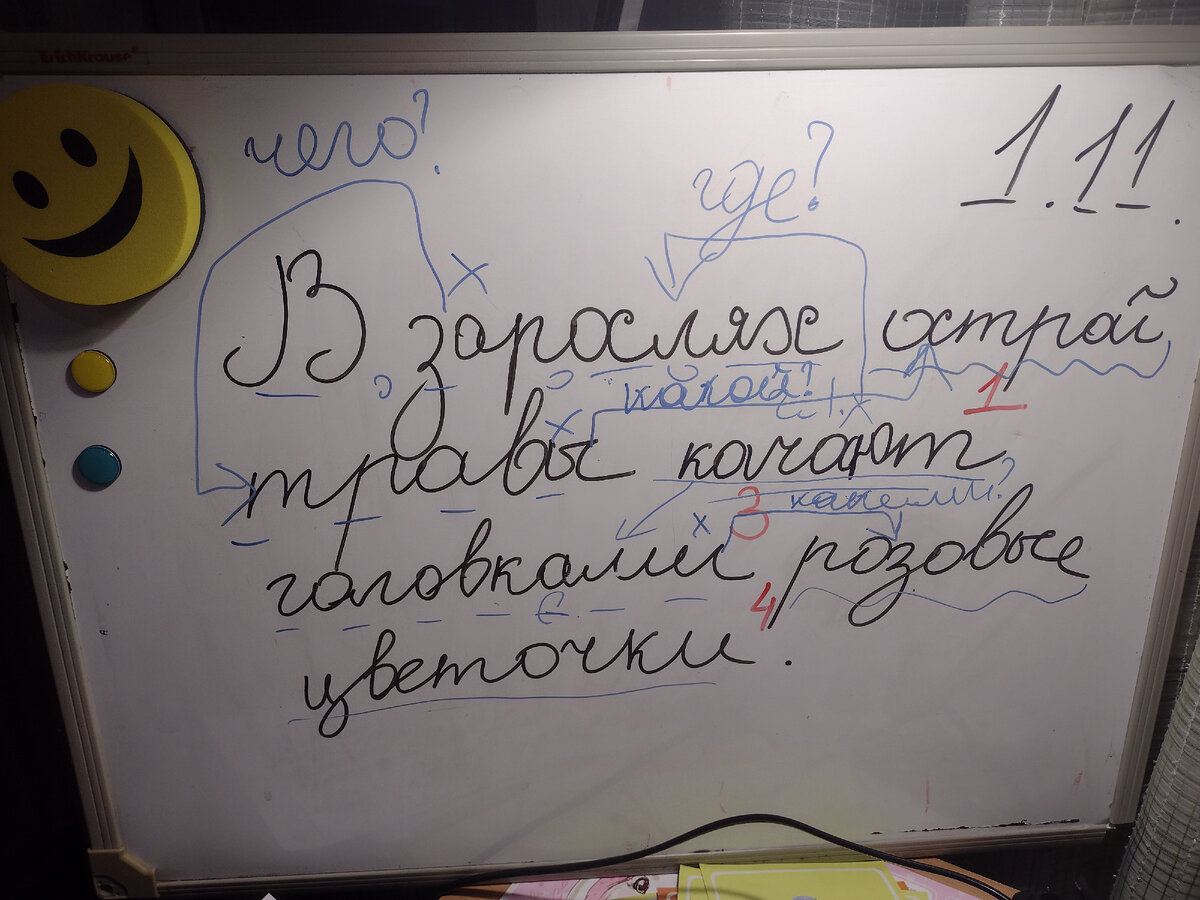 ErichKrause®
1.11.
чего?
где?
В зарослях острой
какой?
1
травы качают
какими?
3
головками розовые
4
цветочки.